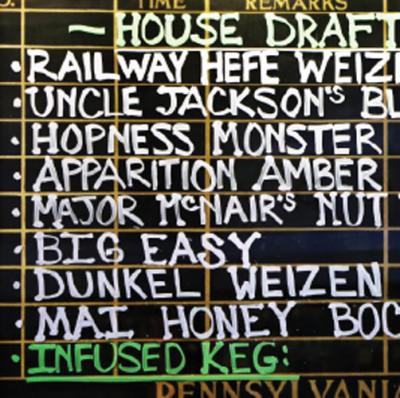 TIME REMARKS
— HOUSE DRAFT
• RAILWAY HEFE WEIZ
• UNCLE JACKSON'S BL
• HOPNESS MONSTER
• APPARITION AMBER
• MAJOR McNAIR'S NUT
• BIG EASY
• DUNKEL WEIZEN
• MAI HONEY BOC
• INFUSED KEG:
PENNSYLVANIA